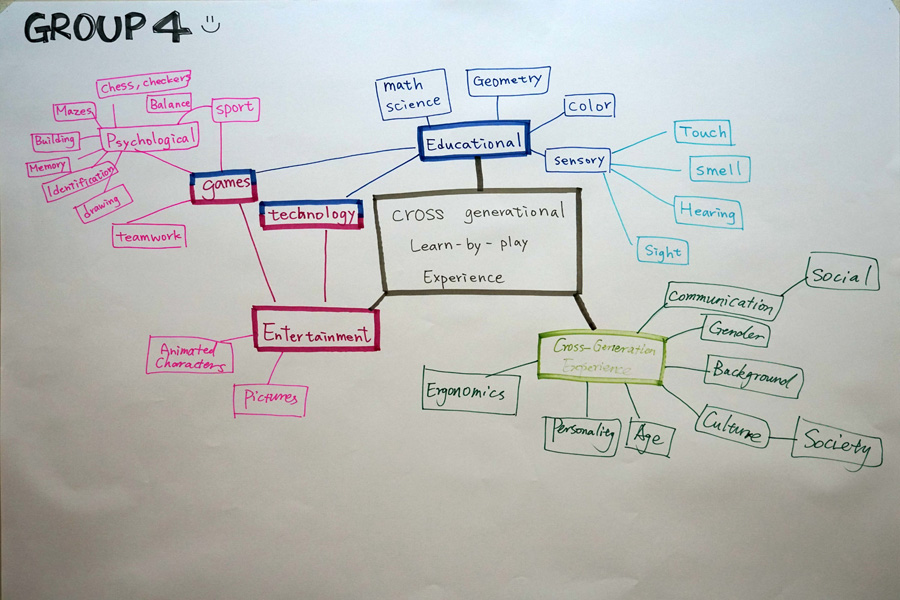 GROUP 4
chess, checkers
Balance
sport
Mazes
Psychological
Building
Memory
Identification
drawing
games
teamwork
technology
math
science
Geometry
color
Educational
sensory
Touch
smell
Hearing
Sight
cross generational
Learn-by-play
Experience
Entertainment
Animated
Characters
Pictures
Cross-Generation
Experience
communication
Social
Gender
Background
Culture
Society
Ergonomics
Personality
Age